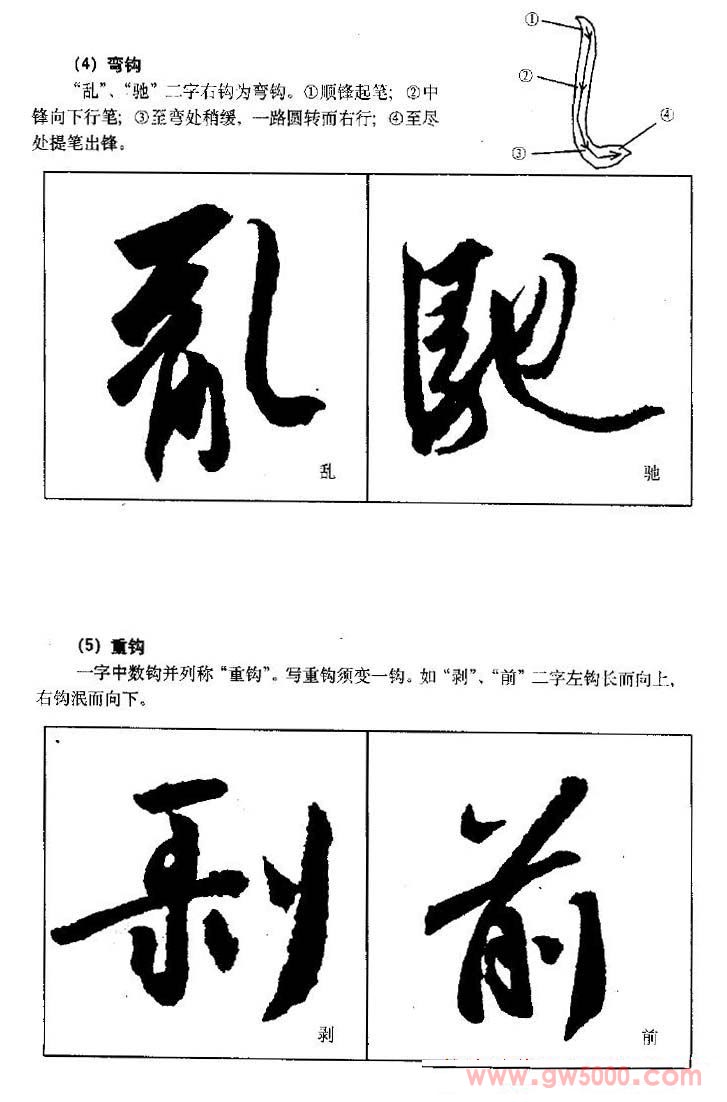 (4) 弯钩
“乱”、“驰”二字右钩为弯钩。①顺锋起笔；②中
锋向下行笔；③至弯处稍缓，一路圆转而右行；④至尽
处提笔出锋。
①
②
③
④
亂
馳
乱
驰
(5) 重钩
一字中数钩并列称“重钩”。写重钩须变一钩。如“剥”、“前”二字左钩长而向上，
右钩泯而向下。
剥
前
剥
前
www.gw5000.com